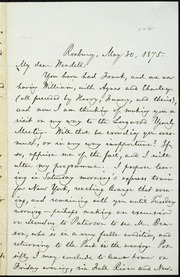 Roxbury, May 30, 1875.
My dear Wendell:
You have had Frank, and are now
having William, with Agnes and Charley,
(all preceded by Harry, Fanny, and their's)
and now I am thinking of making you a
visit on my way to the Longwood Yearly
Meeting. Will that be crowding you over-
much, or in any way inopportune? If
so, apprise me of the fact, and I will
alter my programme. I propose leav-
ing in Saturday morning's express train
for New York, reaching Orange that even-
ing, and remaining with you until Tuesday
morning – perhaps making an excursion
on Monday to Paterson to see Mr.
who is in a very feeble condition, and
returning to the Park in the evening. Pos-
sibly, I may conclude to leave home on
Friday evening, via Fall River and New-